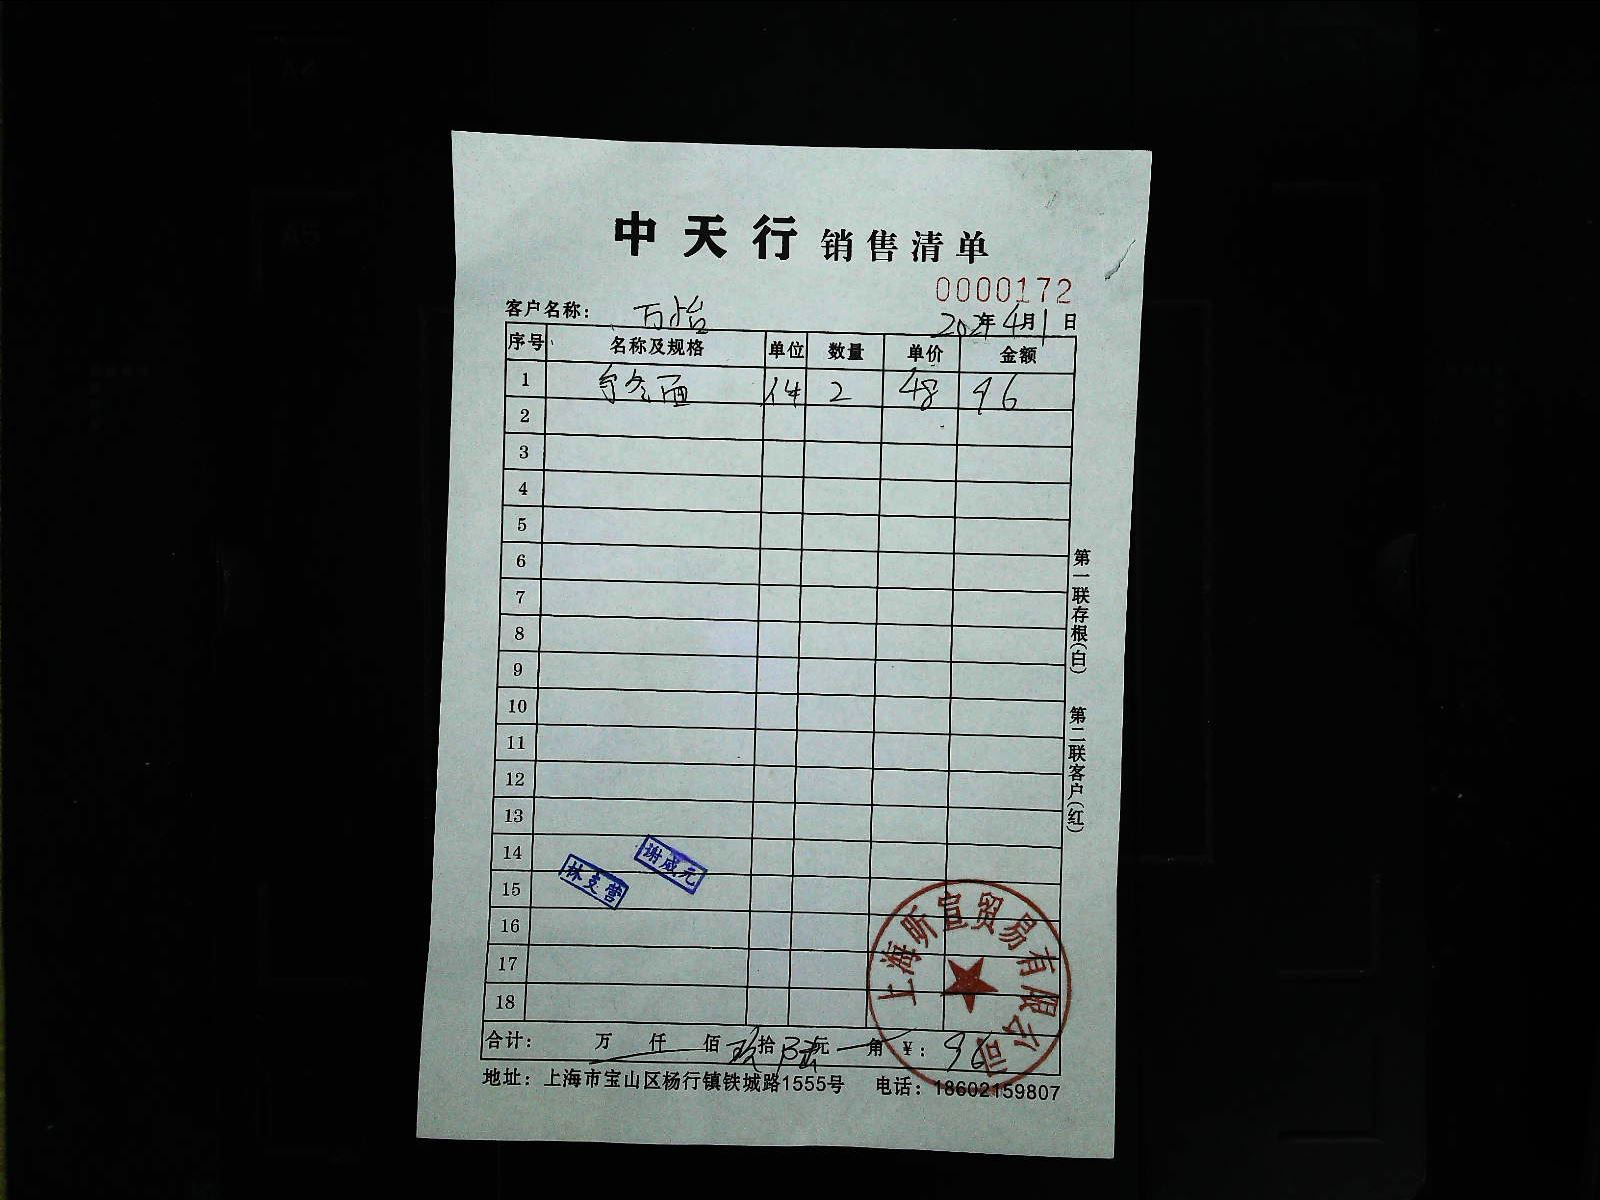 中天行 销售清单
0000172
客户名称： 万怡 202 年 4 月 1 日
序号 名称及规格 单位 数量 单价 金额
1 件 2 48 96
2
3
4
5
6
7
8
9
10
11
12
13
14
15
16
17
18
谢成元
林支营
上海昕宣贸易有限公司
合计： 万 仟 佰 玖 拾 陆 元 角 ¥： 96
地址：上海市宝山区杨行镇铁城路1555号 电话：18602159807
第一联存根(白) 第二联客户(红)